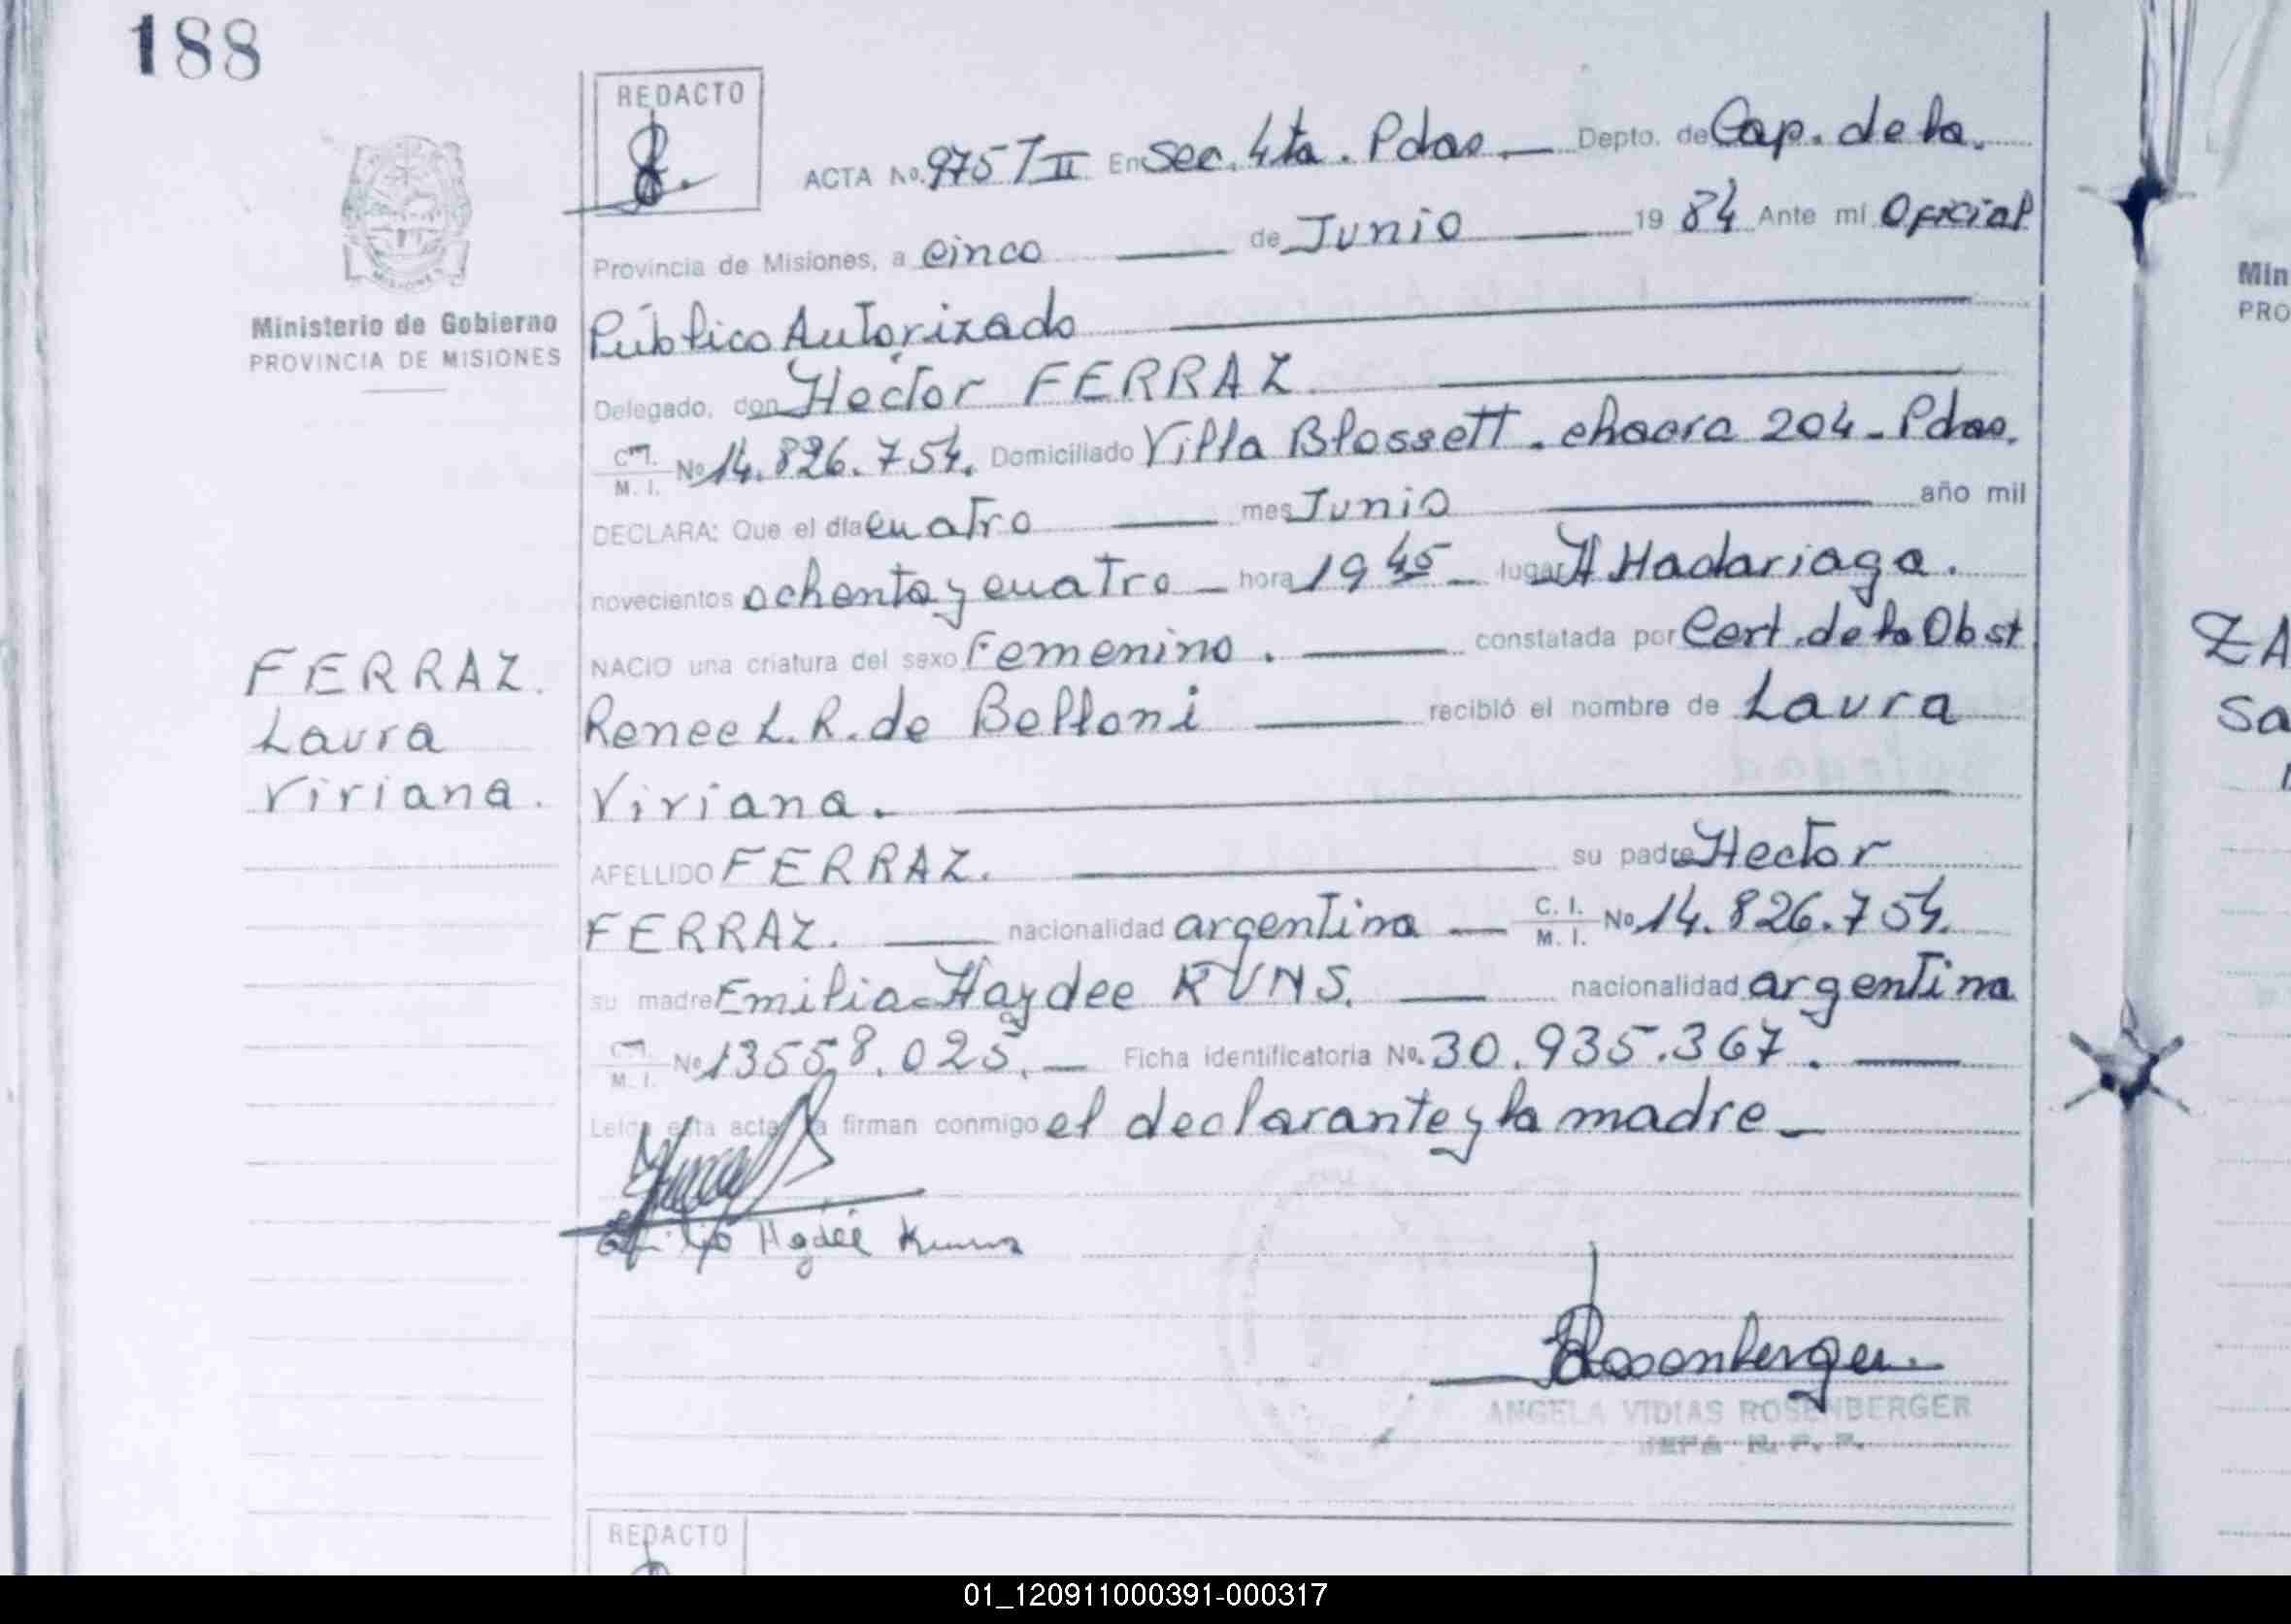 188
REDACTO
ACTA No. 975 T II En Sec. 4ta. Pdas. Depto. de Cap. de la.
Provincia de Misiones, a cinco de Junio 19 84 Ante mí Oficial
Ministerio de Gobierno
PROVINCIA DE MISIONES
Público Autorizado
Delegado, don Hector FERRAZ
C.I. M.I. No 14.826.754. Domiciliado Villa Blossett. chacra 204 - Pdas.
DECLARA: Que el día cuatro mes Junio año mil
novecientos ochenta y cuatro - hora 19 45 - lugar H Madariaga.
NACIO una criatura del sexo Femenino. constatada por Cert. de la Obst
FERRAZ.
Laura
Viviana.
Renee L. R. de Belloni recibió el nombre de Laura
Viviana.
APELLIDO FERRAZ. su padre Hector
FERRAZ. nacionalidad argentina - C. I. M. I. No 14.826.754.
su madre Emilia Haydee KUNS. nacionalidad argentina
C.I. M. I. No 13558.025. - Ficha identificatoria No. 30.935.367.
Leída esta acta la firman conmigo el declarante y la madre -
Rosenberger
ANGELA VIDIAS ROSENBERGER
JEFA R. P. P.
REDACTO
Min
PRO
ZA
Sa
01_120911000391-000317